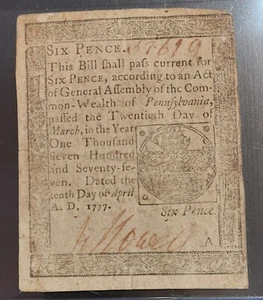 SIX PENCE.
This Bill shall pass current for
SIX PENCE, according to an Act
of General Assembly of the Com-
mon-Wealth of Pennsylvania,
passed the Twentieth Day of
March, in the Year
One Thousand
Seven Hundred
and Seventy-se-
ven. Dated the
tenth Day of April
A. D. 1777.
Six Pence
A